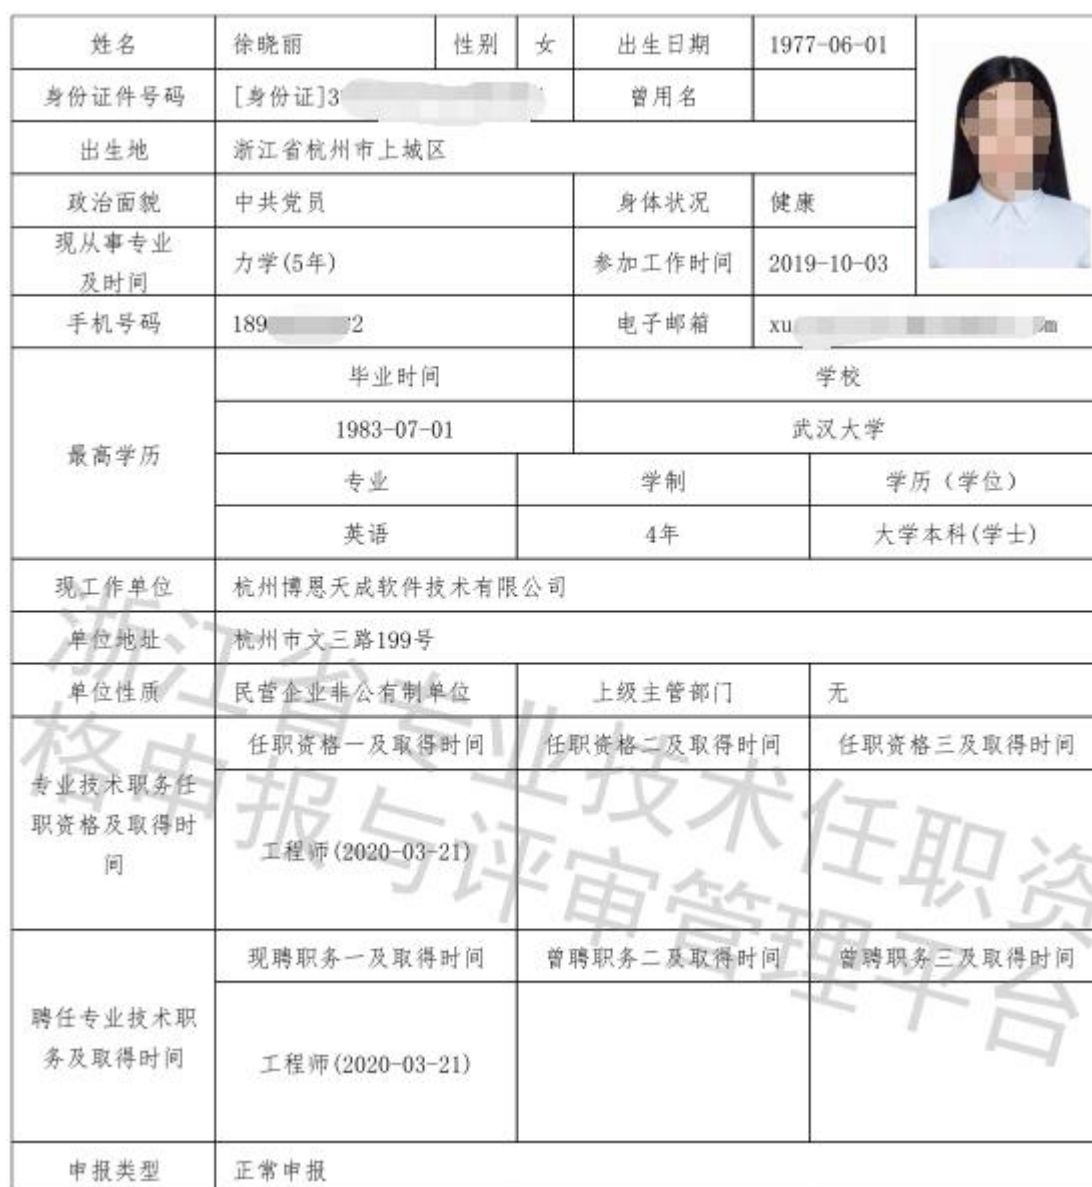 姓名 徐晓丽 性别 女 出生日期 1977-06-01
身份证件号码 [身份证]3 曾用名
出生地 浙江省杭州市上城区
政治面貌 中共党员 身体状况 健康
现从事专业
及时间
力学(5年) 参加工作时间 2019-10-03
手机号码 189 2 电子邮箱 xu m
最高学历
毕业时间 学校
1983-07-01 武汉大学
专业 学制 学历（学位）
英语 4年 大学本科(学士)
现工作单位 杭州博恩天成软件技术有限公司
单位地址 杭州市文三路199号
单位性质 民营企业非公有制单位 上级主管部门 无
专业技术职务任
职资格及取得时
间
任职资格一及取得时间 任职资格二及取得时间 任职资格三及取得时间
工程师(2020-03-21)
聘任专业技术职
务及取得时间
现聘职务一及取得时间 曾聘职务二及取得时间 曾聘职务三及取得时间
工程师(2020-03-21)
申报类型 正常申报
浙江省专业技术任职资
格申报与评审管理平台